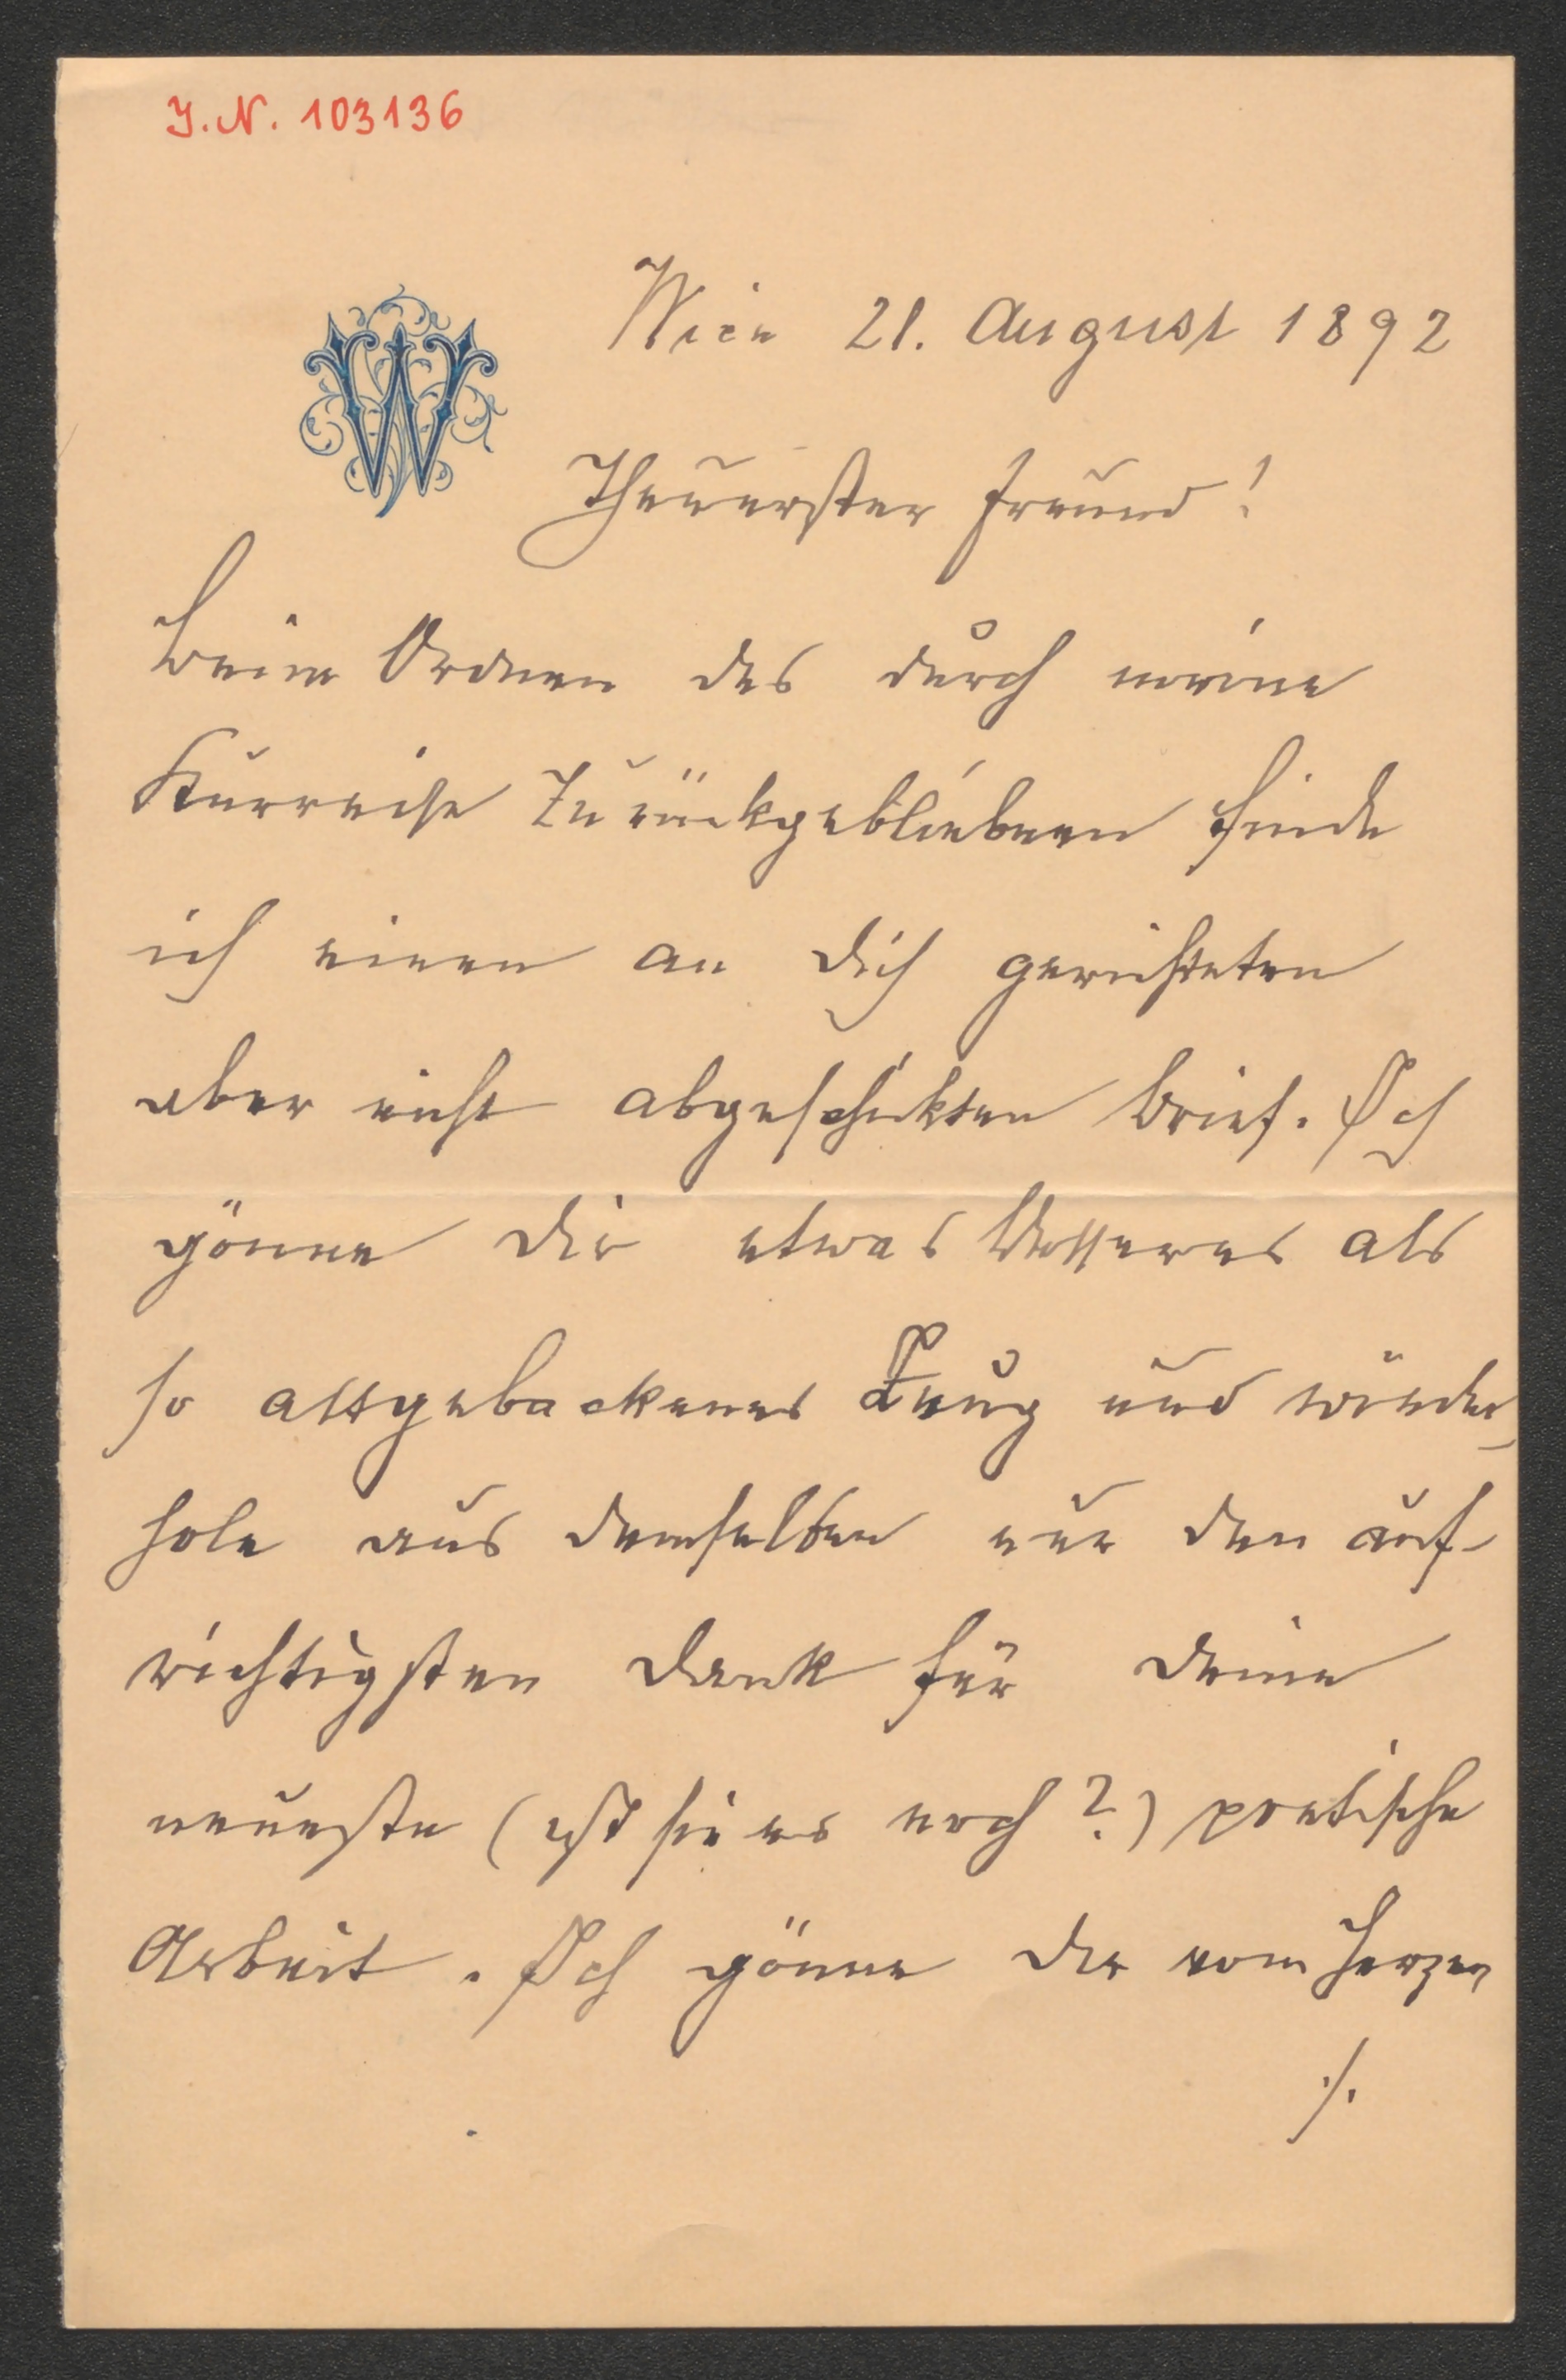 J.N. 103136
W
Wien 21. August 1892
Theuerster Freund!
Beim Ordnen des durch meine
Kurreise Zurückgebliebenen finde
ich einen an Dich gerichteten
aber nicht abgeschickten Brief. Ich
gönne Dir etwas Besseres als
so altgebackenes Zeug und wieder-
hole aus demselben nur den auf-
richtigsten Dank für Deine
neueste (ist sie es noch?) poetische
Arbeit. Ich gönne Dir vom Herzen
./.